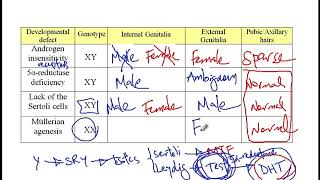 Developmental defect Genotype Internal Genitalia External Genitalia Pubic Axillary hairs
Androgen insensitivity receptors XY Male Female Female Sparse
5α-reductase deficiency XY Male Ambiguous Normal
Lack of the Sertoli cells XY Male Female Male Normal
Müllerian agenesis XX F Normal
Y → SRY → Testes Sertoli → MIF
Leydig → Test 5α-reductase DHT